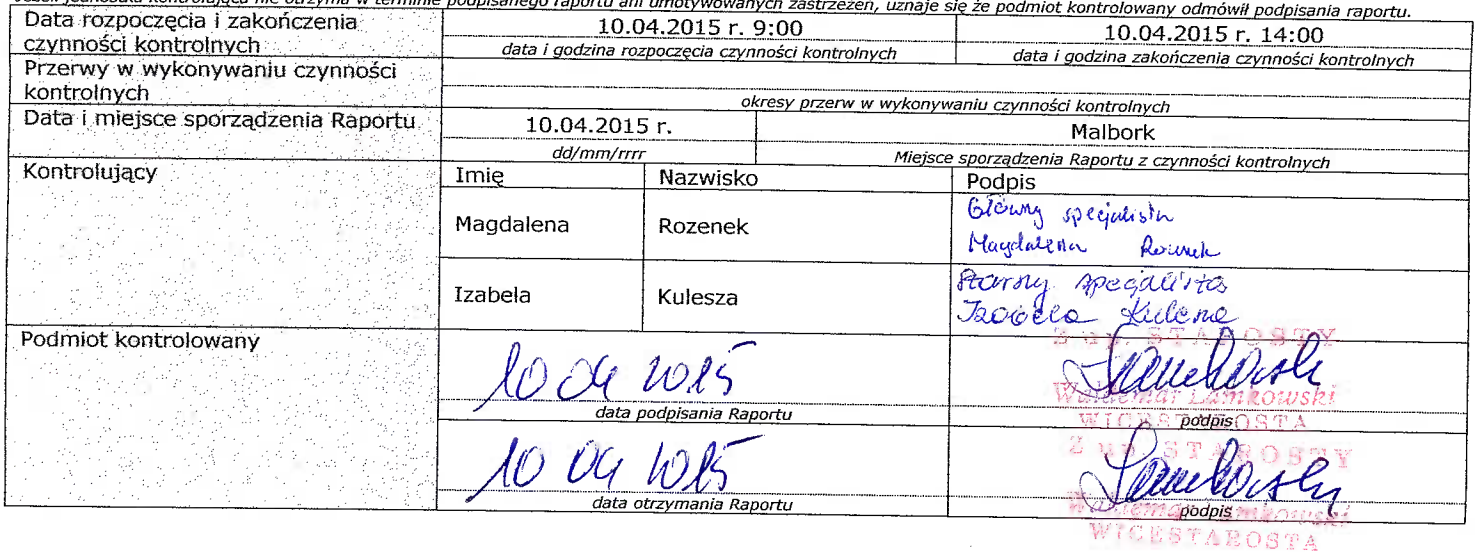 Jeżeli jednostka kontrolująca nie otrzyma w terminie podpisanego raportu ani umotywowanych zastrzeżeń, uznaje się że podmiot kontrolowany odmówił podpisania raportu.
Data rozpoczęcia i zakończenia czynności kontrolnych
10.04.2015 r. 9:00
10.04.2015 r. 14:00
data i godzina rozpoczęcia czynności kontrolnych
data i godzina zakończenia czynności kontrolnych
Przerwy w wykonywaniu czynności kontrolnych
okresy przerw w wykonywaniu czynności kontrolnych
Data i miejsce sporządzenia Raportu
10.04.2015 r.
Malbork
dd/mm/rrrr
Miejsce sporządzenia Raportu z czynności kontrolnych
Kontrolujący
Imię
Nazwisko
Podpis
Magdalena
Rozenek
Główny specjalista
Magdalena Rozenek
Izabela
Kulesza
Starszy specjalista
Izabela Kulesza
Podmiot kontrolowany
10 04 2015
Z up. STAROSTY
Waldemar Lamkowski
WICESTAROSTA
data podpisania Raportu
podpis
10 04 2015
Z up. STAROSTY
Waldemar Lamkowski
WICESTAROSTA
data otrzymania Raportu
podpis